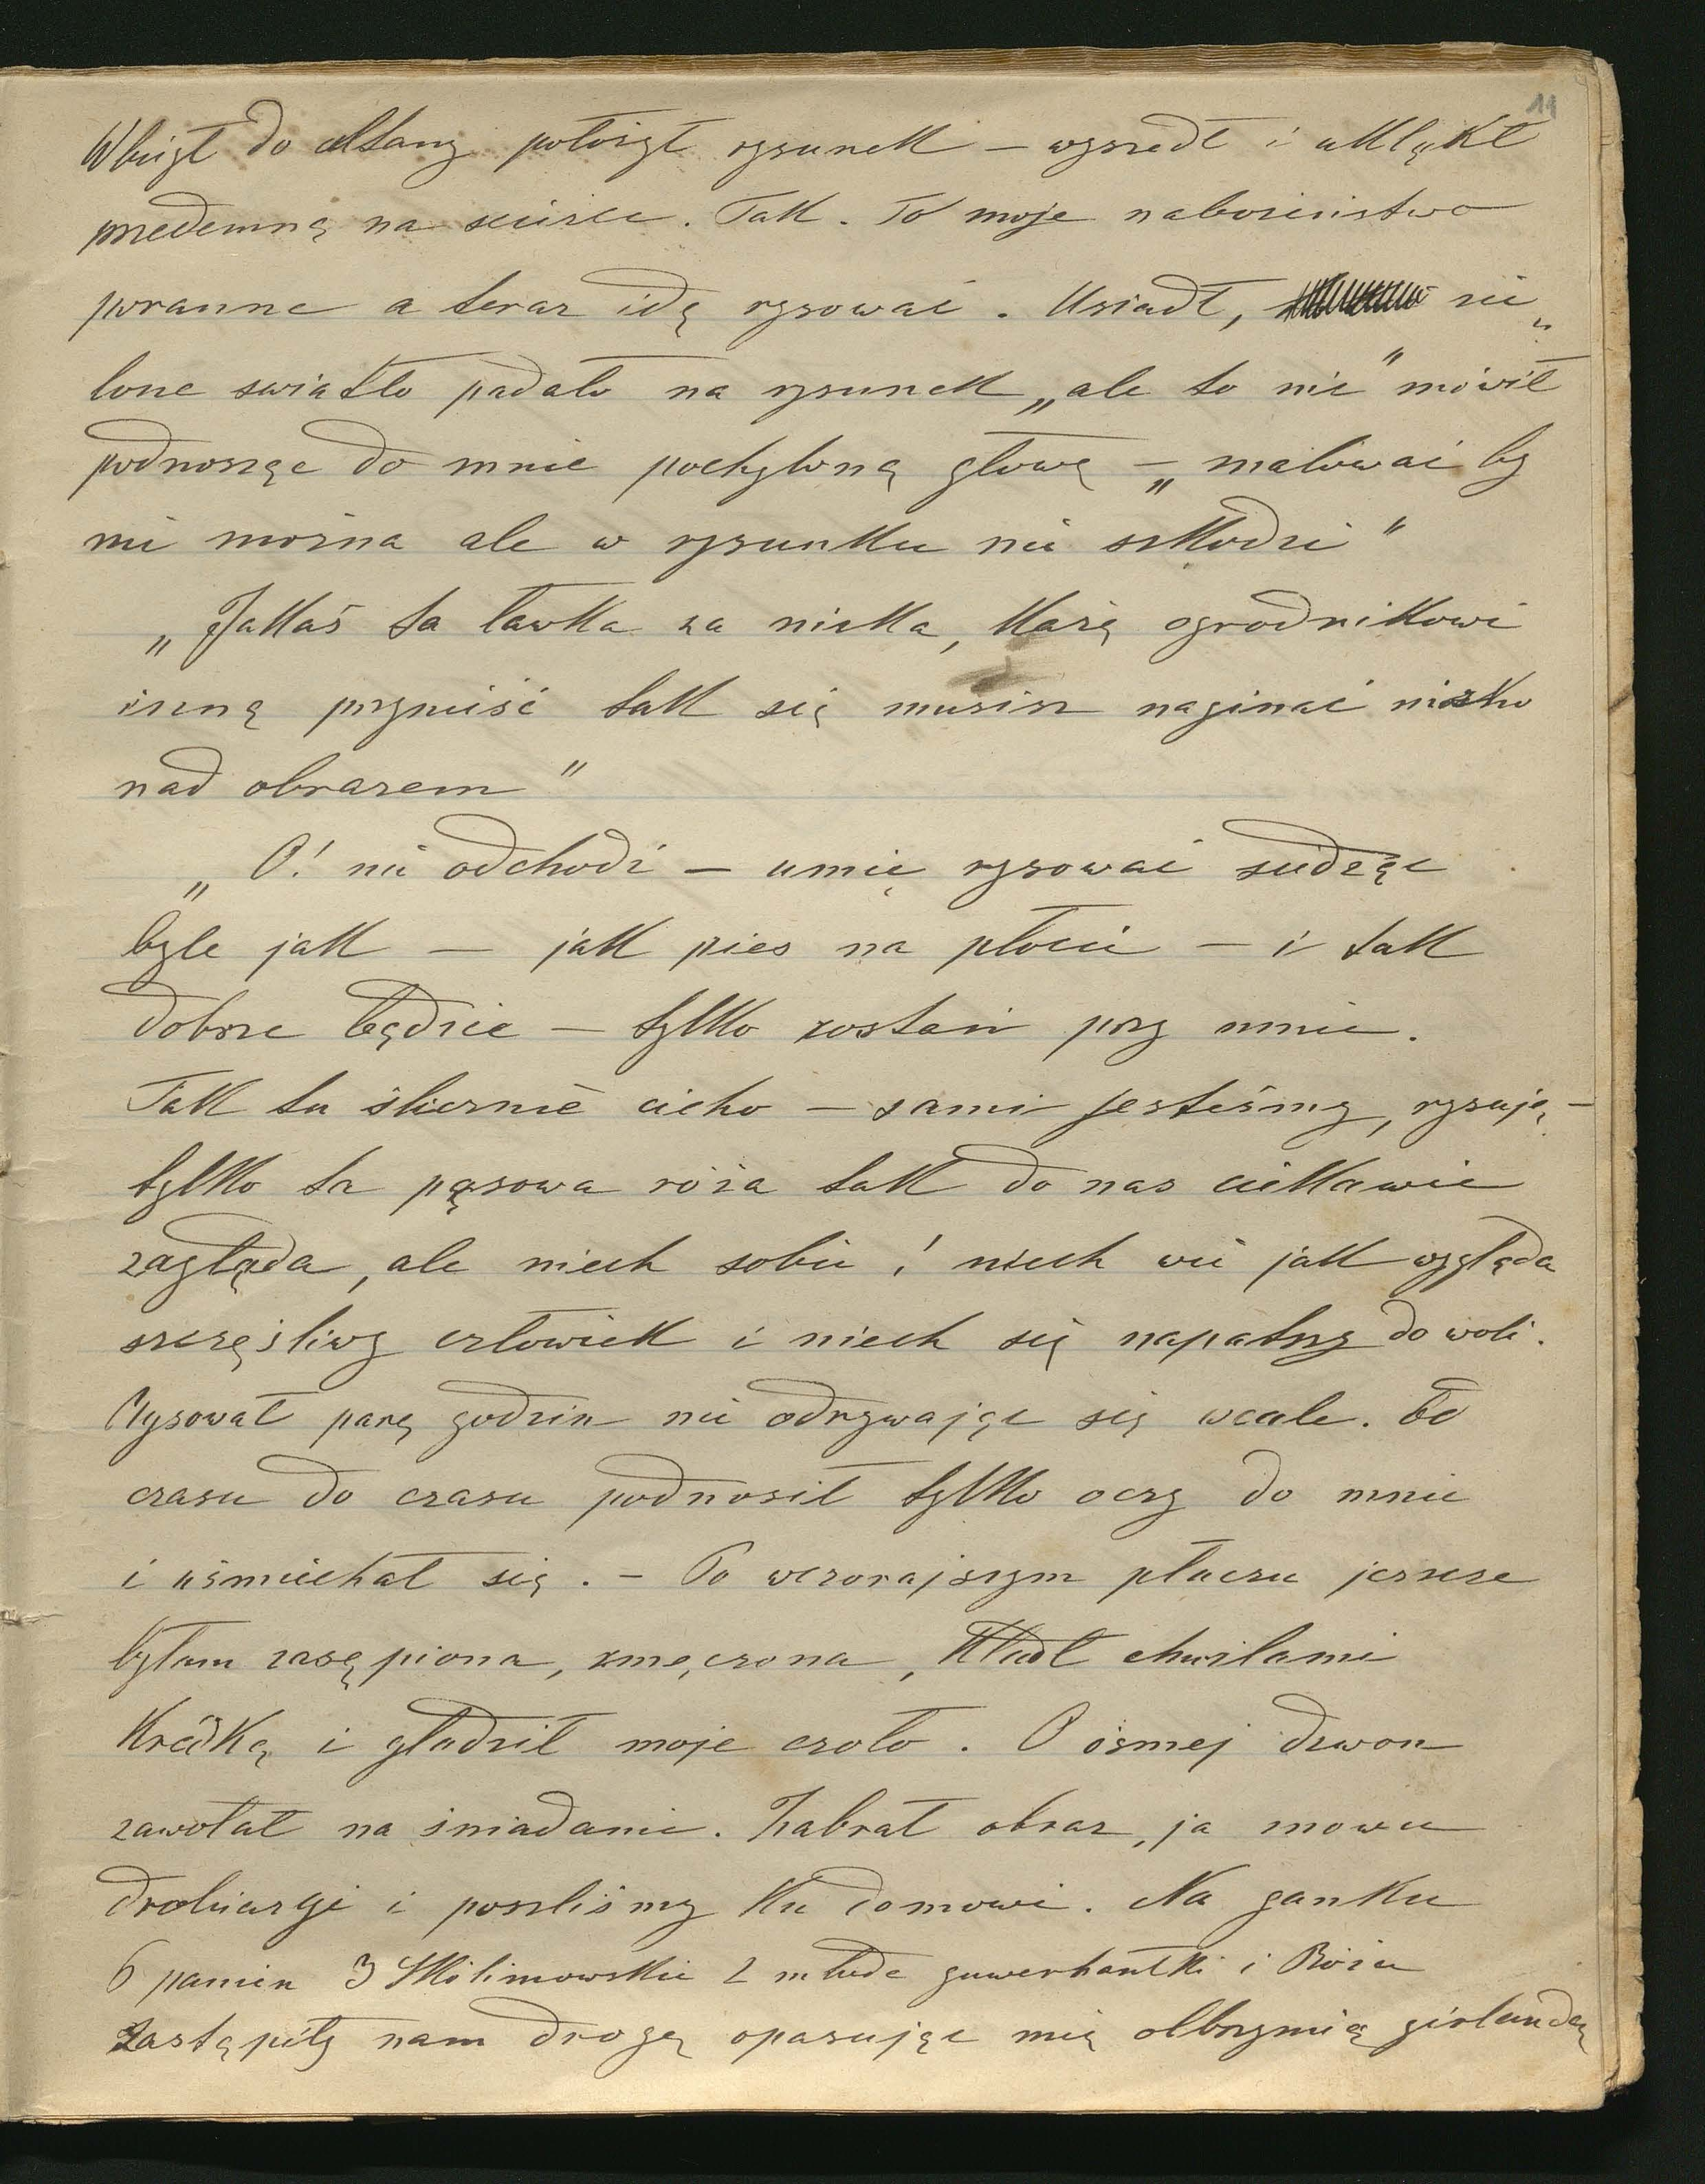 11
Wbiegł do altany położył rysunek – wyszedł i uklękł
przedemną na ścieżce. Tak. To moje nabożeństwo
poranne a teraz idę rysować. Usiadł, zie„
lone swiatło padało na rysunek „ale to nic" mówił
podnosząc do mnie pochyloną głowę – „malować by
nie można ale w rysunku nie szkodzi"
„Jakaś ta ławka za nizka, każę ogrodnikowi
inną przynieść tak się musisz naginać nizko
nad obrazem"
„O! nie odchodź – umię rysować siedząc
byle jak – jak pies na płocie – i tak
dobrze będzie – tylko zostań przy mnie.
Tak tu ślicznie cicho – sami jesteśmy, rysuję –
tylko ta pąsowa róża tak do nas ciekawie
zagląda, ale niech sobie! niech wie jak wygląda
szczęśliwy człowiek i niech się napatrzy do woli.
Rysował parę godzin nie odrywając się wcale. Od
czasu do czasu podnosił tylko oczy do mnie
i uśmiechał się. – Po wczorajszym płaczu jeszcze
byłam zasępiona, zmęczona, kładł chwilami
kredkę i gładził moje czoło. O ósmej dzwon
zawołał na śniadanie. Zabrał obraz, ja znowu
drobiazgi i poszliśmy ku domowi. Na ganku
6 panien 3 Skolimowskie 2 młode guwernantki i Rózia
zastąpiły nam drogę opasując mię olbrzymią girlandą